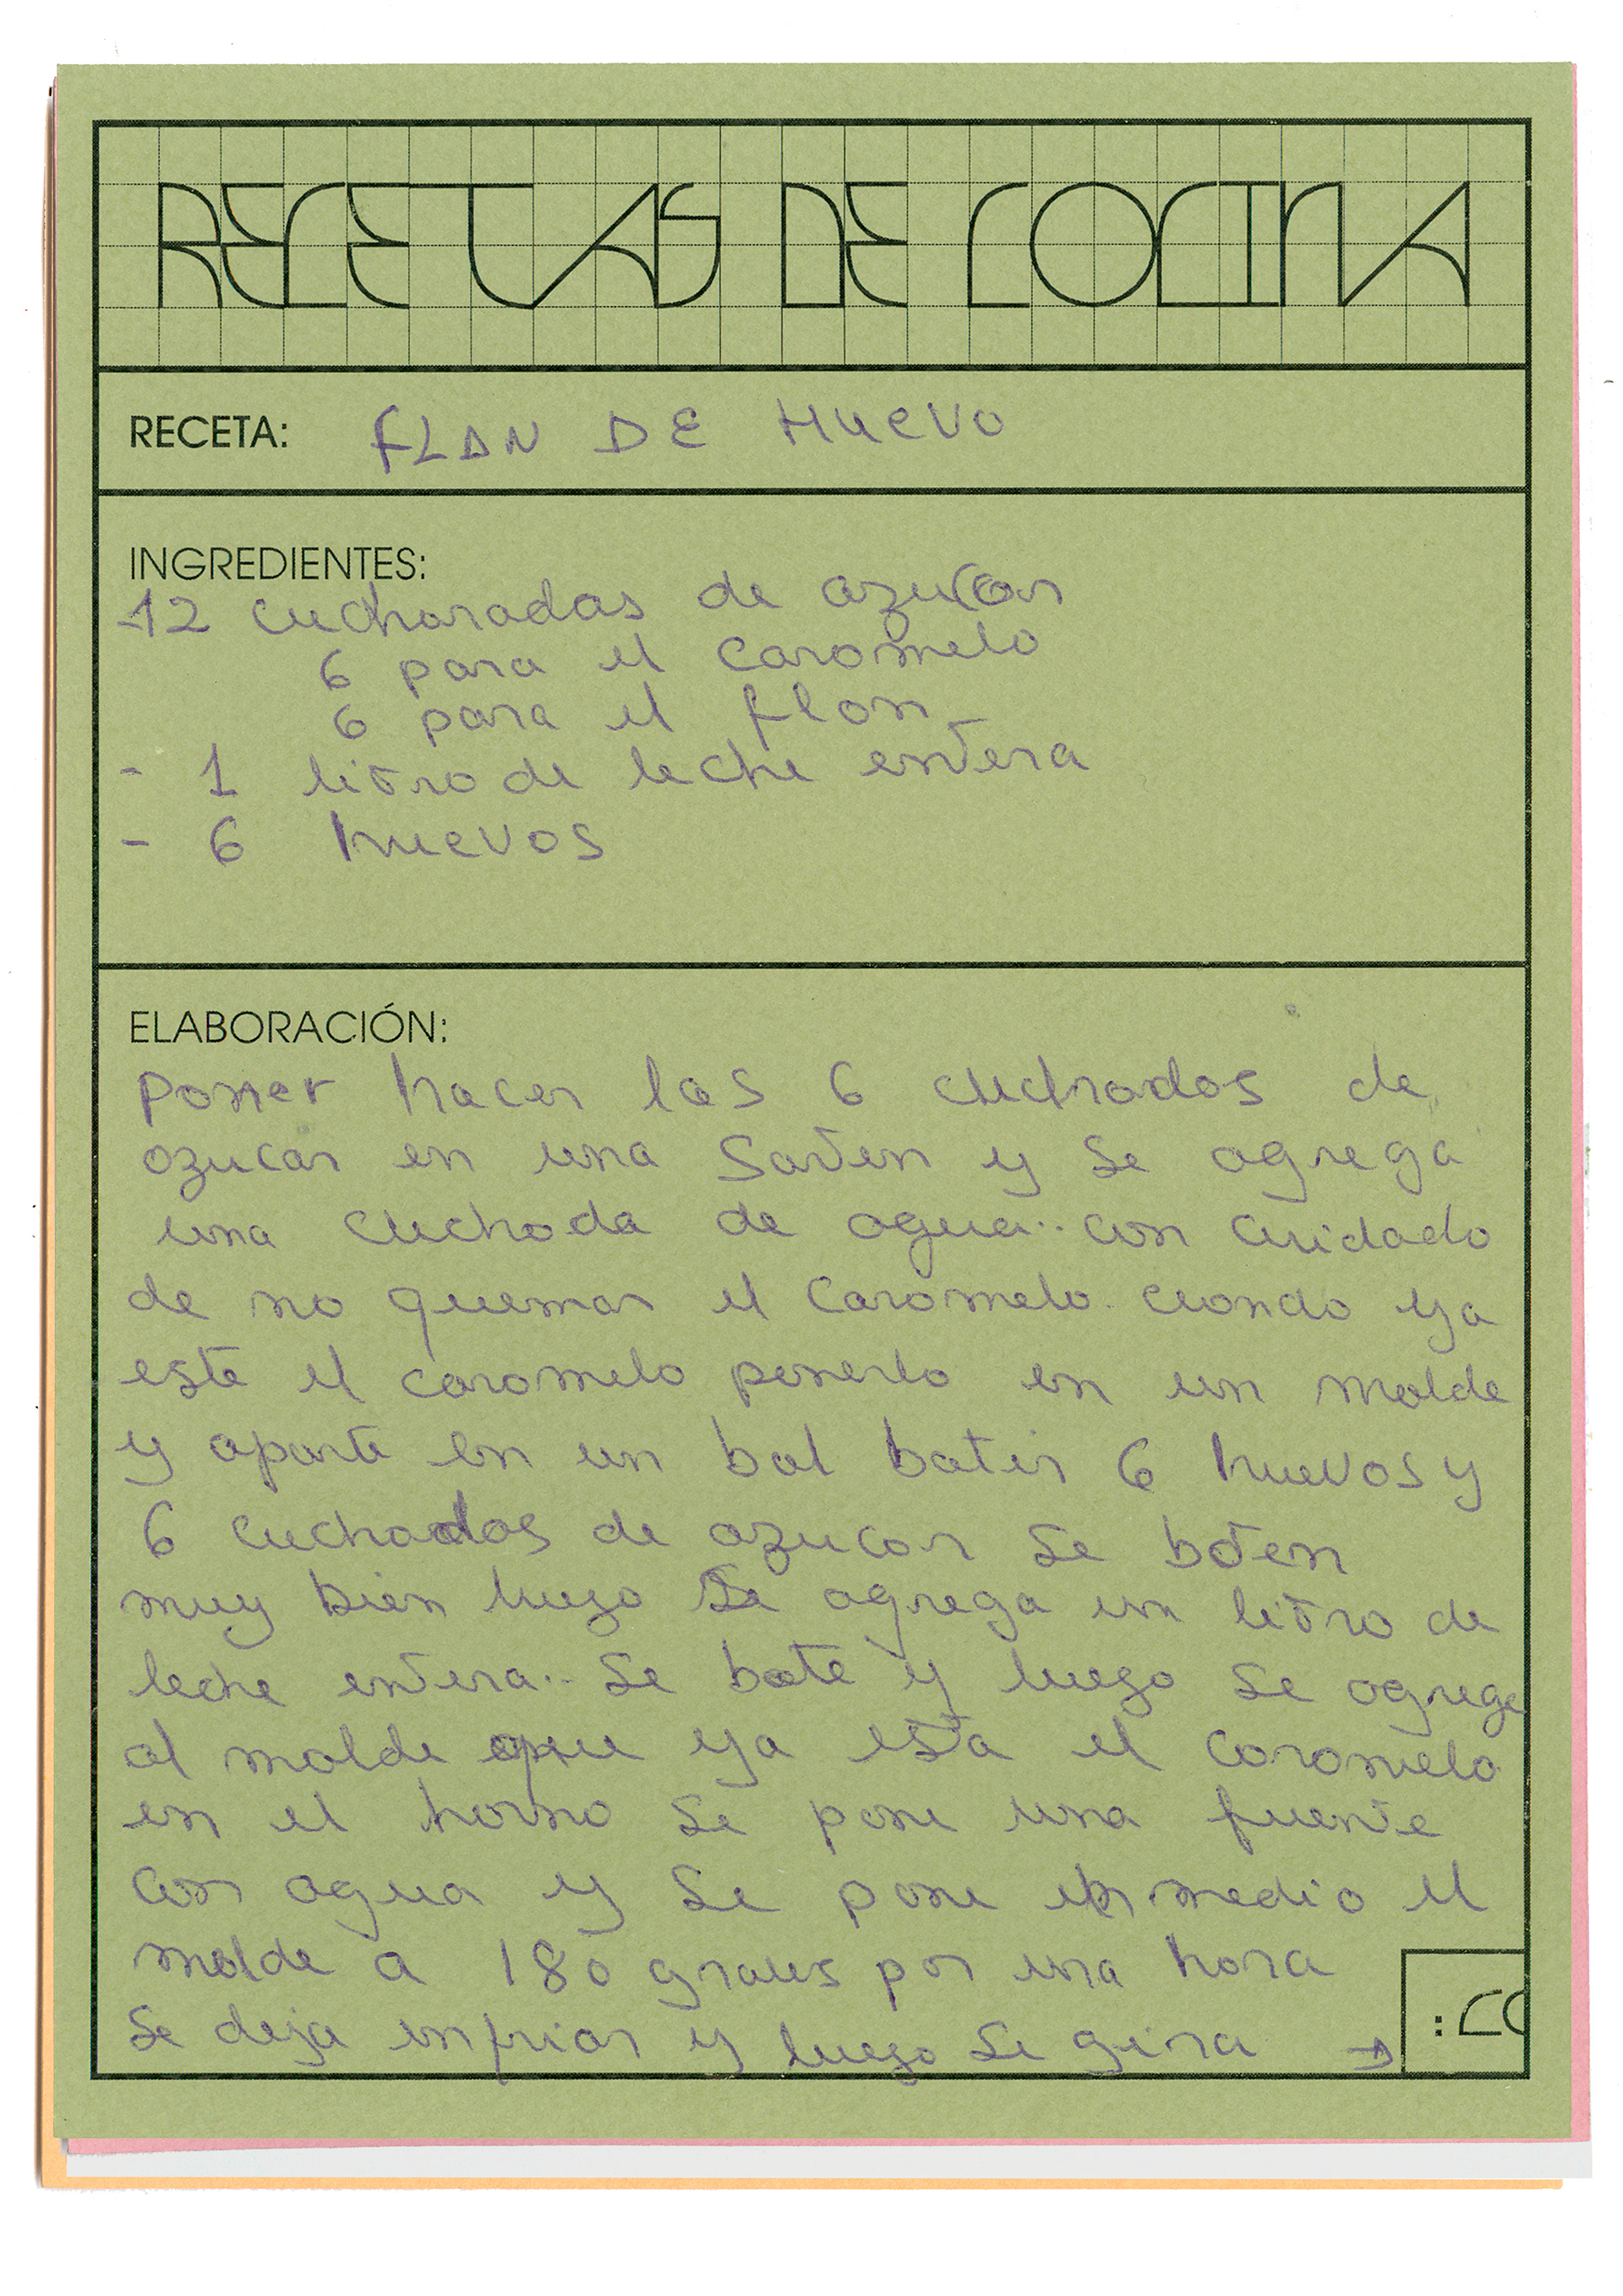 RECETAS DE COCINA
RECETA: FLAN DE HUEVO
INGREDIENTES:
-12 cucharadas de azucar
6 para el caramelo
6 para el flan
- 1 litro de leche entera
- 6 huevos
ELABORACIÓN:
Poner hacer las 6 cuchradas de
azucar en una Sarten y se agrega
una cuchada de agua.. con cuidado
de no quemar el caramelo. cuando ya
este el caramelo ponerlo en un molde
y aparte en un bol batir 6 huevos y
6 cuchadas de azucar se baten
muy bien luego se agrega un litro de
leche entera.. se bate y luego se agrega
al molde que ya esta el caramelo
en el horno se pone una fuente
con agua y se pone en medio el
molde a 180 graus por una hora
se deja enfriar y luego se gira →
:CO